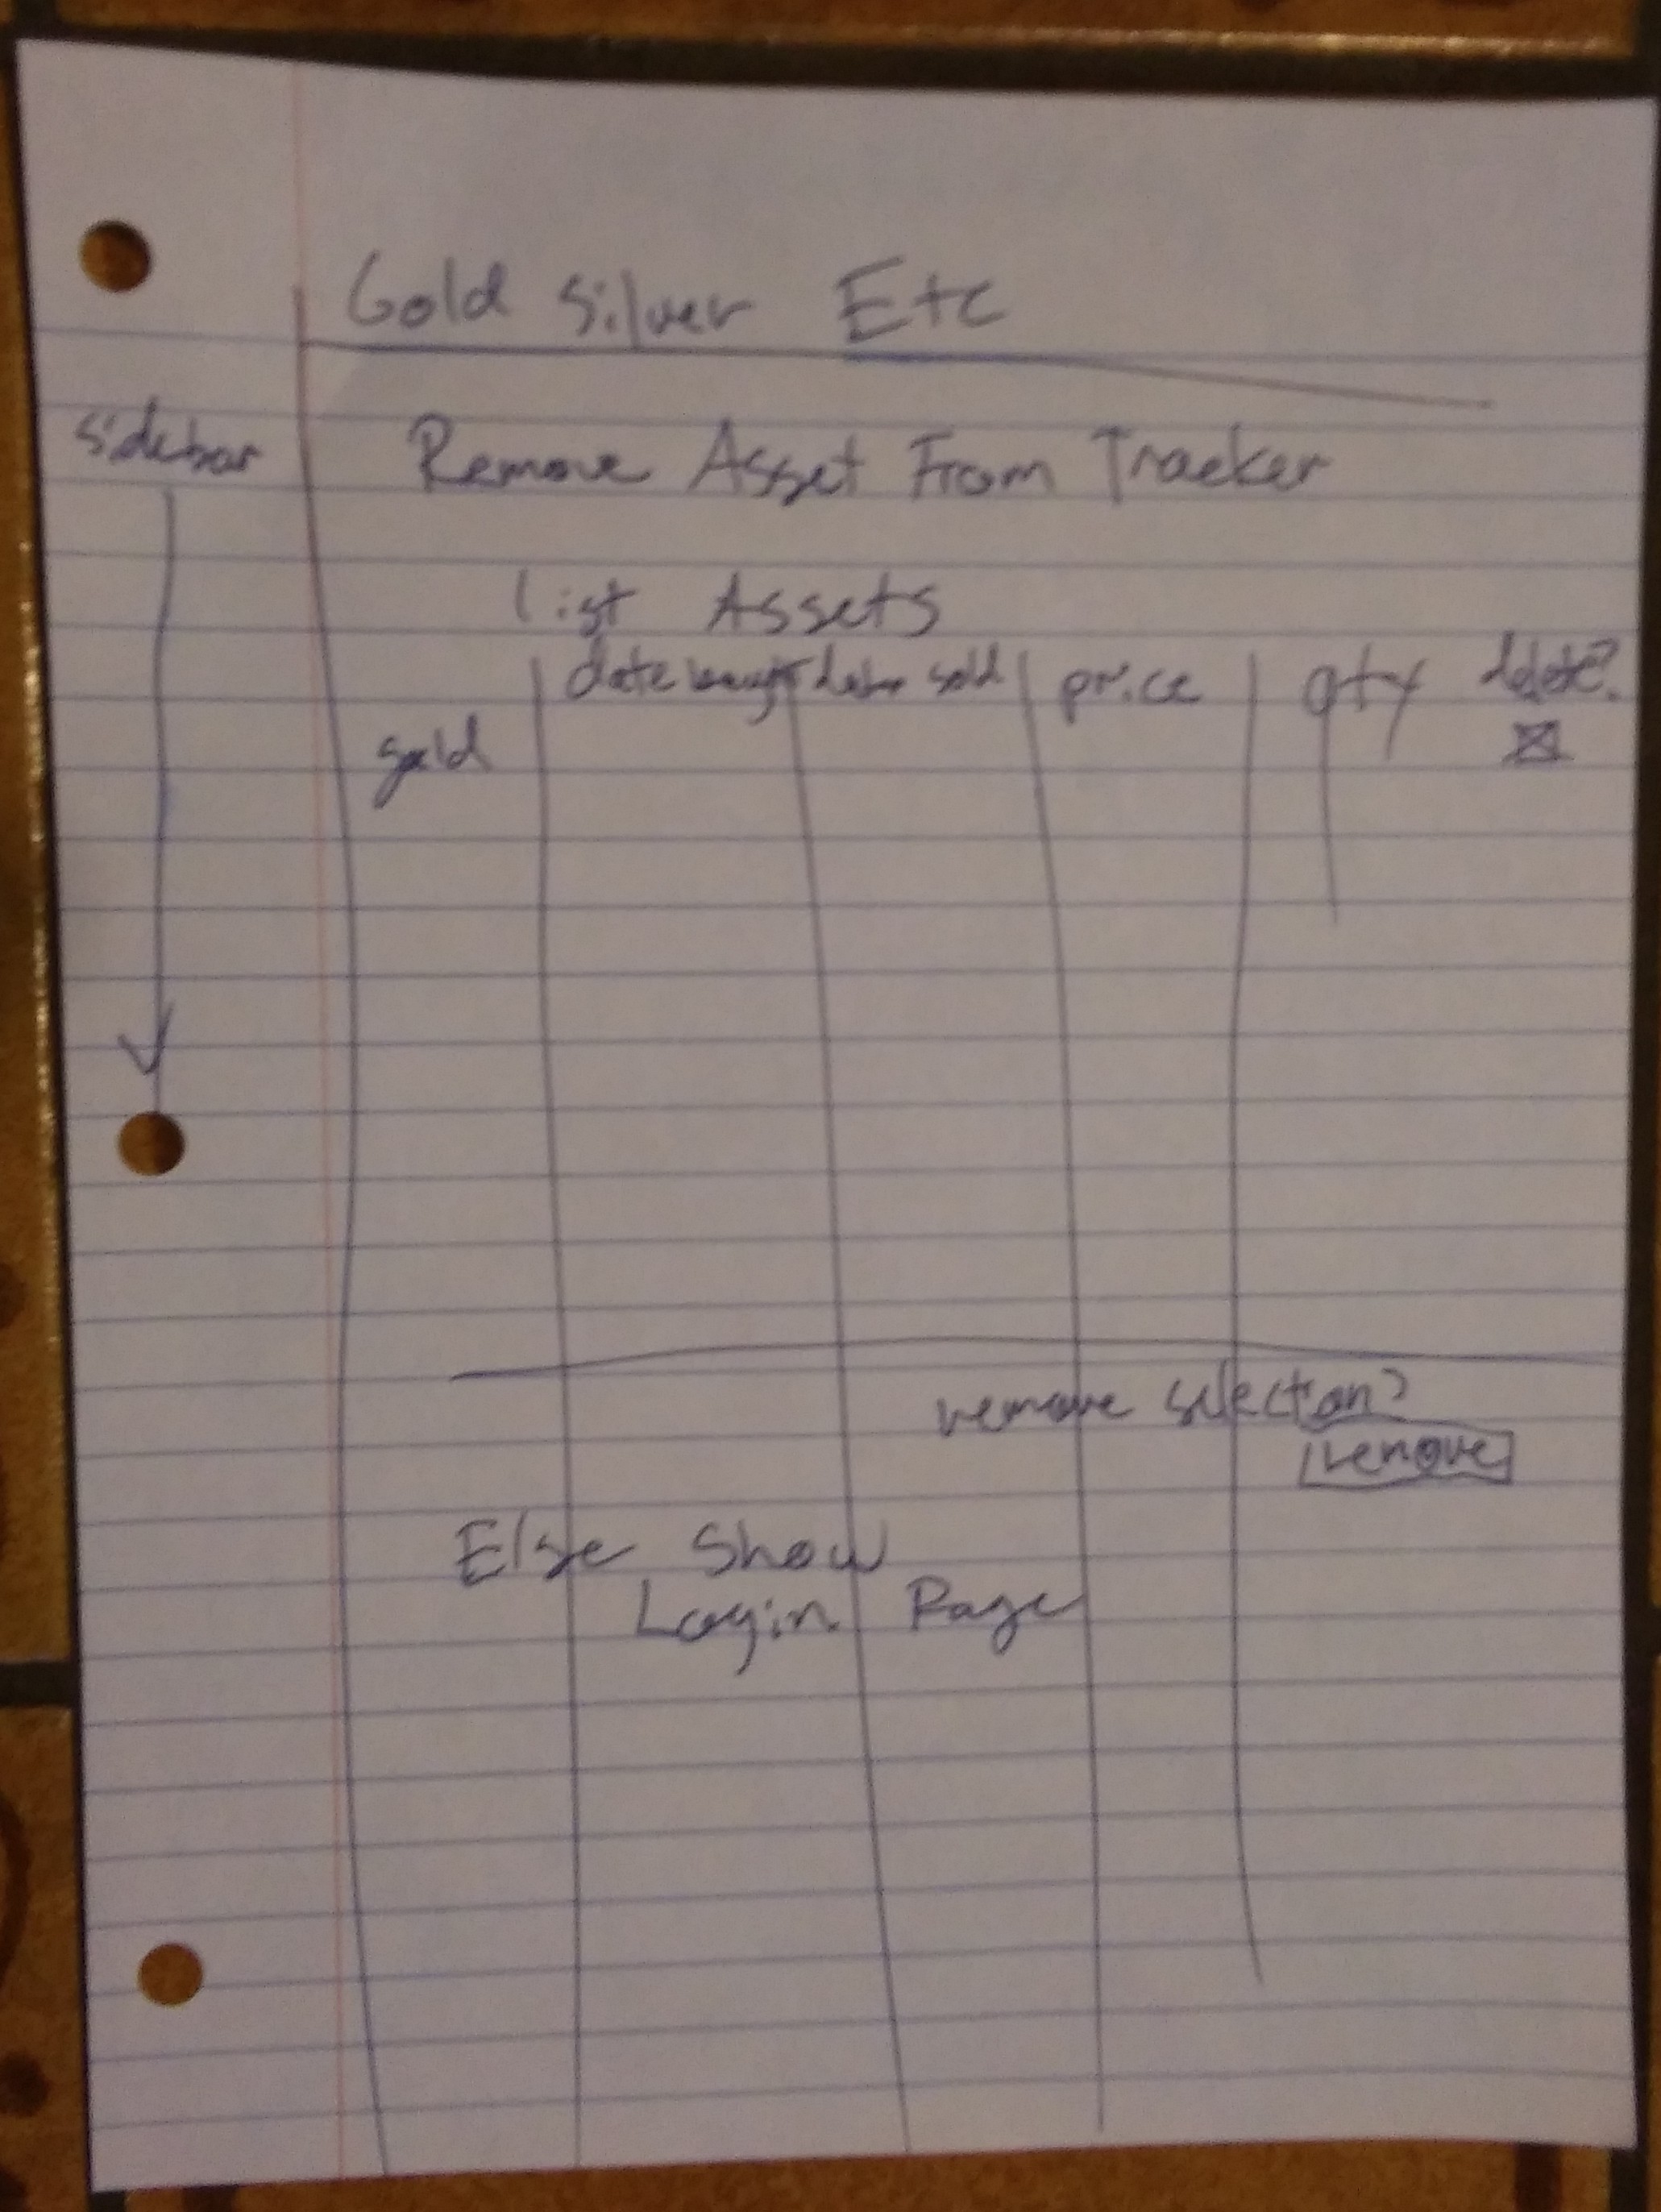 Gold Silver Etc
sidebar
Remove Asset From Tracker
list Assets
date bought date sold price qty delete?
gold
remove selection?
remove
Else Show
Login Page